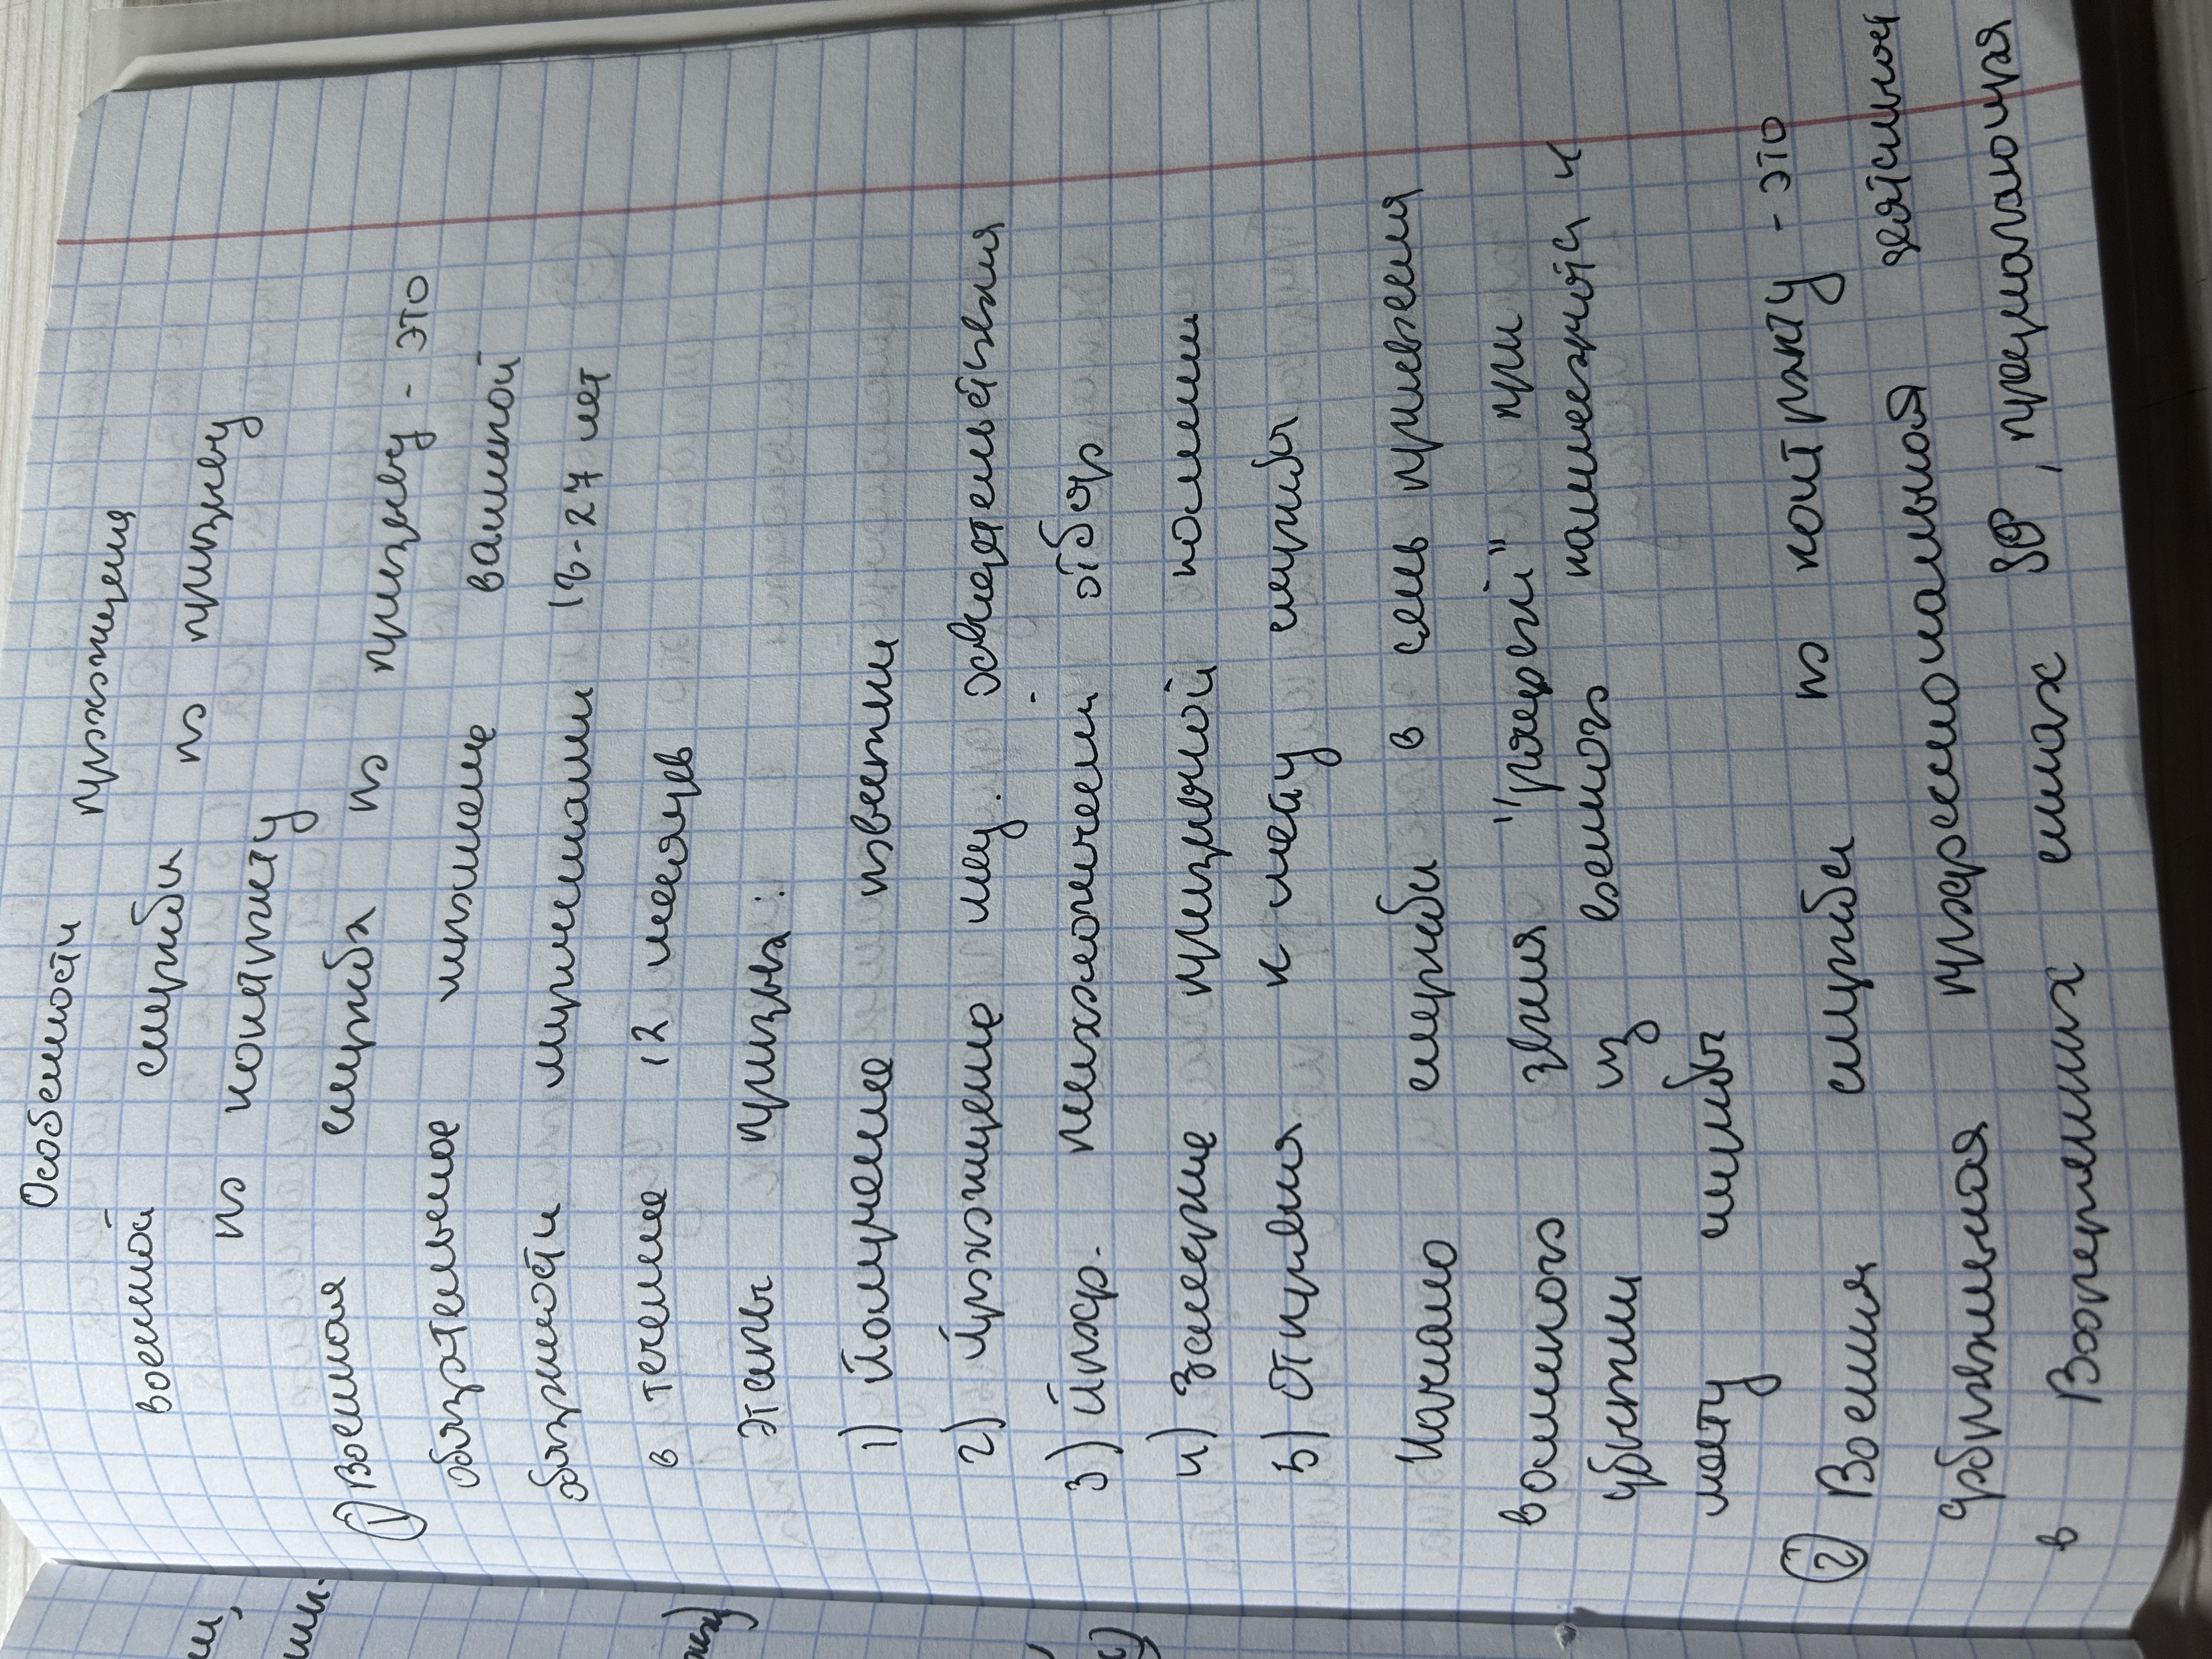 Особенности прохождения
военной службы по призыву
по контракту
① Военная служба по призыву - это
обязательное исполнение воинской
обязанности мужчинами 18-27 лет
в течение 12 месяцев
Этапы призыва:
1) Получение повестки
2) Прохождение мед. освидетельствования
3) Проф. психологический отбор
4) Заседание призывной комиссии
5) Отправка к месту службы
Начало службы в день присвоения
воинского звания "рядовой" при
убытии из военного комиссариата к
месту службы
② Военная служба по контракту - это
добровольная профессиональная деятельность
в Вооруженных силах РФ, предполагающая